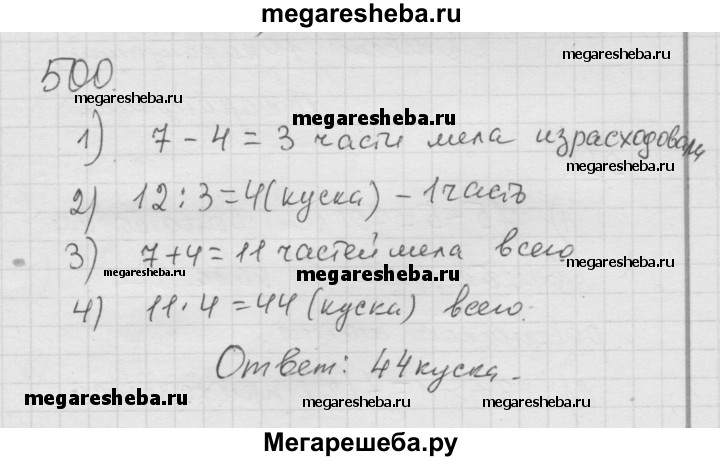 megaresheba.ru
500.
megaresheba.ru
megaresheba.ru
megaresheba.ru
1) 7 - 4 = 3 части мела израсходовали
megaresheba.ru
2) 12 : 3 = 4 (куска) - 1 часть
3) 7 + 4 = 11 частей мела всего
megaresheba.ru
megaresheba.ru
megaresheba.ru
4) 11 · 4 = 44 (куска) всего.
Ответ: 44 куска.
megaresheba.ru
megaresheba.ru
megaresheba.ru
Мегарешеба.ру